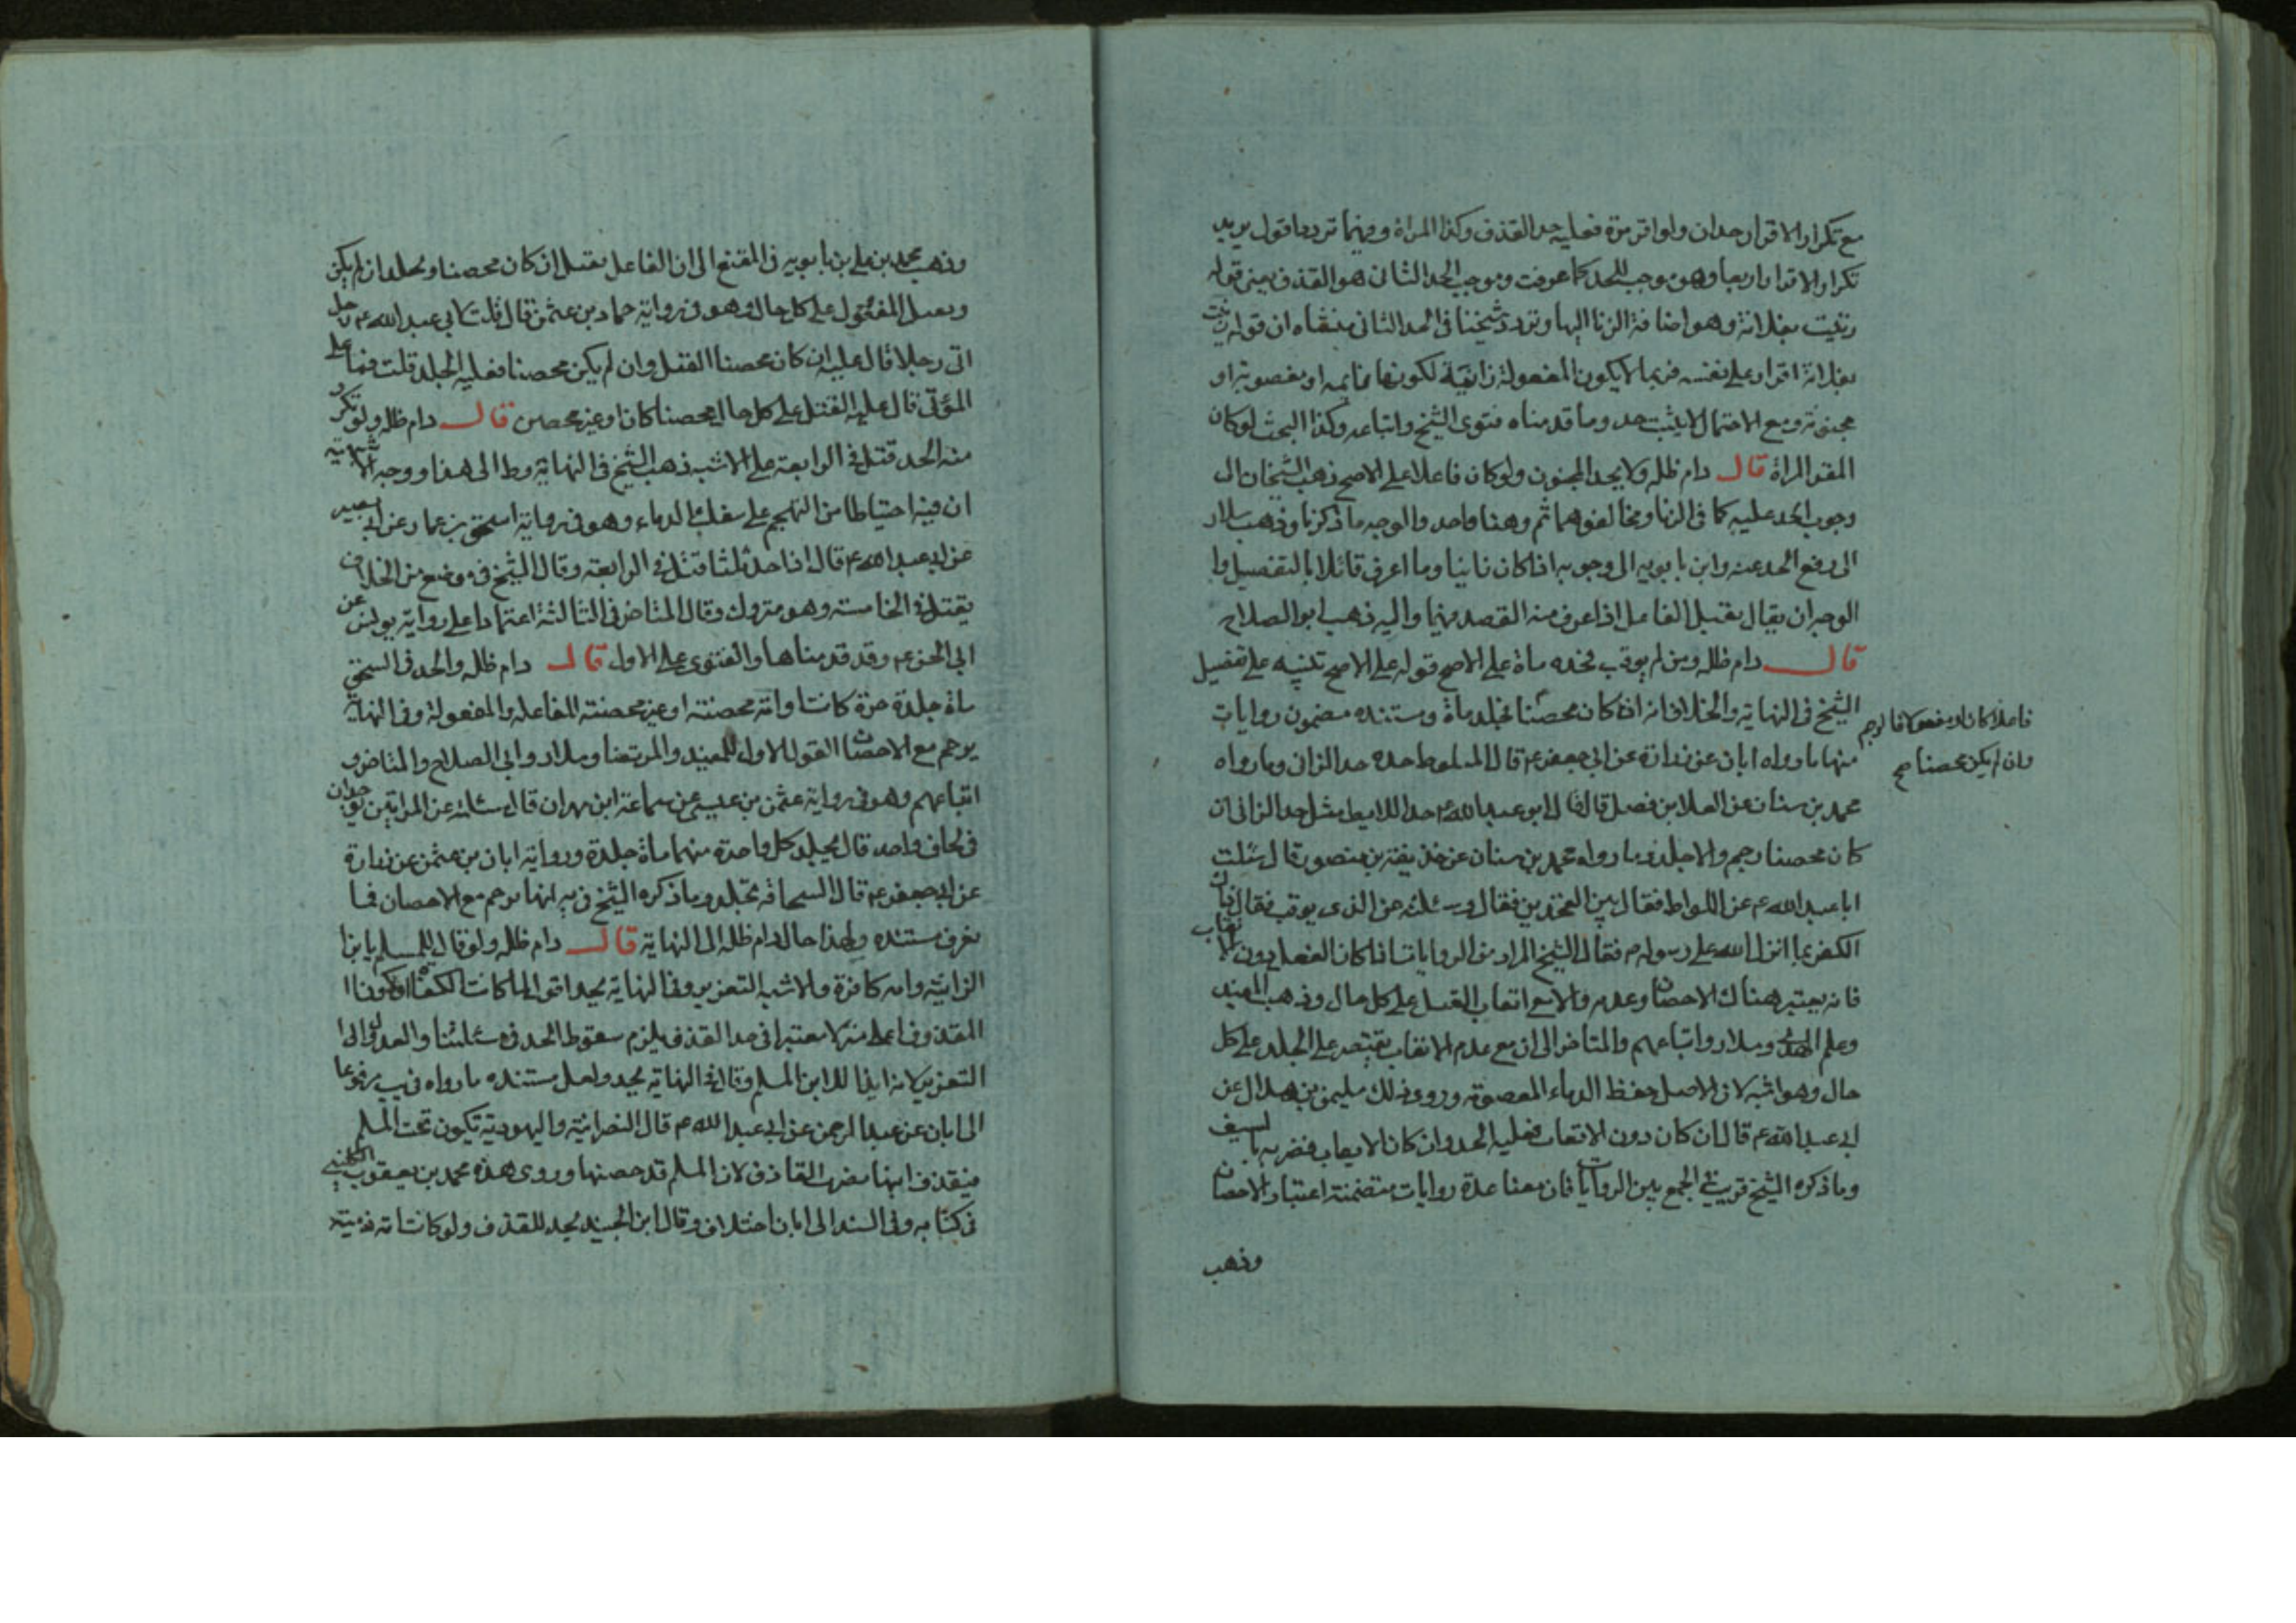 مع تكرار الاقرار حدان ولو اقر مرة فعليه حد القذف وكذا المراة وفيهما تردد اقول يريد
تكرار الاقرار اربعا وهو موجب للحد كما عرفت وموجب الحد الثاني هو القذف يعني قوله
زنيت بفلانة وهو اضافة الزنا اليها وتردد شيخنا في الحد الثاني منشاه ان قوله زنيت
بفلانة اقرار على نفسه فربما لا يكون المفعولة زانية لكونها نائمه او مغصوبة او
مجنونة ومع الاحتمال لا يثبت حد وما قدمناه فتوى الشيخ واتباعه وكذا البحث لو كان
المقر المراة قال دام ظله ولا يحد المجنون ولو كان فاعلا على الاصح ذهب الشيخان الى
وجوب الحد عليه كما في الزنا ومخالفوهما ثم وهنا واحد والوجه ما ذكرنا وذهب سلار
الى دفع الحد عنه وابن بابويه الى وجوبه اذا كان زانيا وما اعرف قائلا بالتفصيل وا
الوجه ان يقال يقتل الفاعل اذا عرف منه القصد منهما واليه ذهب ابو الصلاح
قال دام ظله ومن لم يوقب فحده ماة على الاصح قوله على الاصح تنبيه على تفصيل
الشيخ في النهاية والخلاف انه اذا كان محصنا فجلد ماة ومستنده مضمون روايات
فاعلا كان او مفعولا فالرجم
وان لم يكن محصنا صح
منها ما رواه ابان عن زرارة عن ابي جعفر ع قال الملوط حده حد الزاني وما رواه
محمد بن سنان عن العلا بن فضل قال قال ابو عبد الله ع حد اللايط مثل حد الزاني ان
كان محصنا رجم والا جلد وما رواه محمد بن سنان عن حذيفة بن منصور قال سئلت
ابا عبد الله ع عن اللواط فقال بين الفخذين فقال وسئلته عن الذي يوقب فقال ذاك
الكفر بما انزل الله على رسوله ص فقال الشيخ المراد من الروايات اذا كان الفعل دون الايقاب
فانه يعتبر هناك الاحصان وعدمه والامع ايقاب القتل على كل حال وذهب المفيد
وعلم الهدى وسلار واتباعهم والمتاخر الى ان مع عدم الايقاب يقتصر على الجلد على كل
حال وهو اشبه لان الاصل حفظ الدماء المعصومة وروى ذلك سليمن بن هلال عن
ابي عبد الله ع قال ان كان دون الايقاب فعليه الحد وان كان الايقاب فضربه بالسيف
وما ذكره الشيخ قريب في الجمع بين الروايات فان معنا عدة روايات متضمنة اعتبار الاحصان
وذهب
وذهب محمد بن علي بن بابويه في المقنع الى ان الفاعل يقتل ان كان محصنا ويجلد ان لم يكن
ويقتل المفعول على كل حال وهو في رواية حماد بن عثمن قال قلت لابي عبد الله ع رجل
اتى رجلا قال عليه ان كان محصنا القتل وان لم يكن محصنا فعليه الجلد قلت فما على
المؤتى قال عليه القتل على كل حال محصنا كان او غير محصن قال دام ظله ولو تكرر
منه الحد قتل في الرابعة على الاشبه ذهب الشيخ في النهاية وط الى هذا ووجه الاشبهية
ان فيه احتياطا من التهجم على سفك الدماء وهو في رواية اسحق بن عمار عن ابي بصير
عن ابي عبد الله ع قال اذا جلد ثلثا قتل في الرابعة وقال الشيخ في موضع من الخلاف
يقتل في الخامسة وهو متروك وقال المتاخر في الثالثة اعتمادا على رواية يونس عن
ابي الحسن ع وقد قدمناها والفتوى على الاول قال دام ظله والحد في السحق
ماة جلدة حرة كانت او امة محصنة او غير محصنة للفاعله والمفعولة وفي النهاية
يرجم مع الاحصان القول الاول للمفيد والمرتضا وسلار وابي الصلاح والمتاخر و
اتباعهم وهو في رواية عثمن بن عيسى عن سماعة ابن مهران قال سئلته عن المراتين توجدان
في لحاف واحد قال يجلد كل واحدة منهما ماة جلدة ورواية ابان بن عثمن عن زرارة
عن ابي جعفر ع قال السحاقة تجلد وما ذكره الشيخ في يه انها ترجم مع الاحصان فما
نعرف مستنده ولهذا حال دام ظله الى النهاية قال دام ظله ولو قال للمسلم يابن
الزانية وامه كافرة فالاشبه التعزير وفي النهاية يحد اقول لما كانت الكفاة
المقذوف اعلى منزلا معتبرا في حد القذف يلزم سقوط الحد في مسئلتنا والعدول الى
التعزير لانه ايذا للابن المسلم وقال في النهاية يحد ولعل مستنده ما رواه في يب مرفوعا
الى ابان عن عبد الرحمن عن ابي عبد الله ع قال النصرانية واليهودية تكون تحت المسلم
فيقذف ابنها يضرب القاذف لان المسلم قد حصنها وروى هذه محمد بن يعقوب الكليني
في كتابه وفي السند الى ابان اختلاف وقال ابن الجنيد يحد للقذف ولو كانت امه ذمية